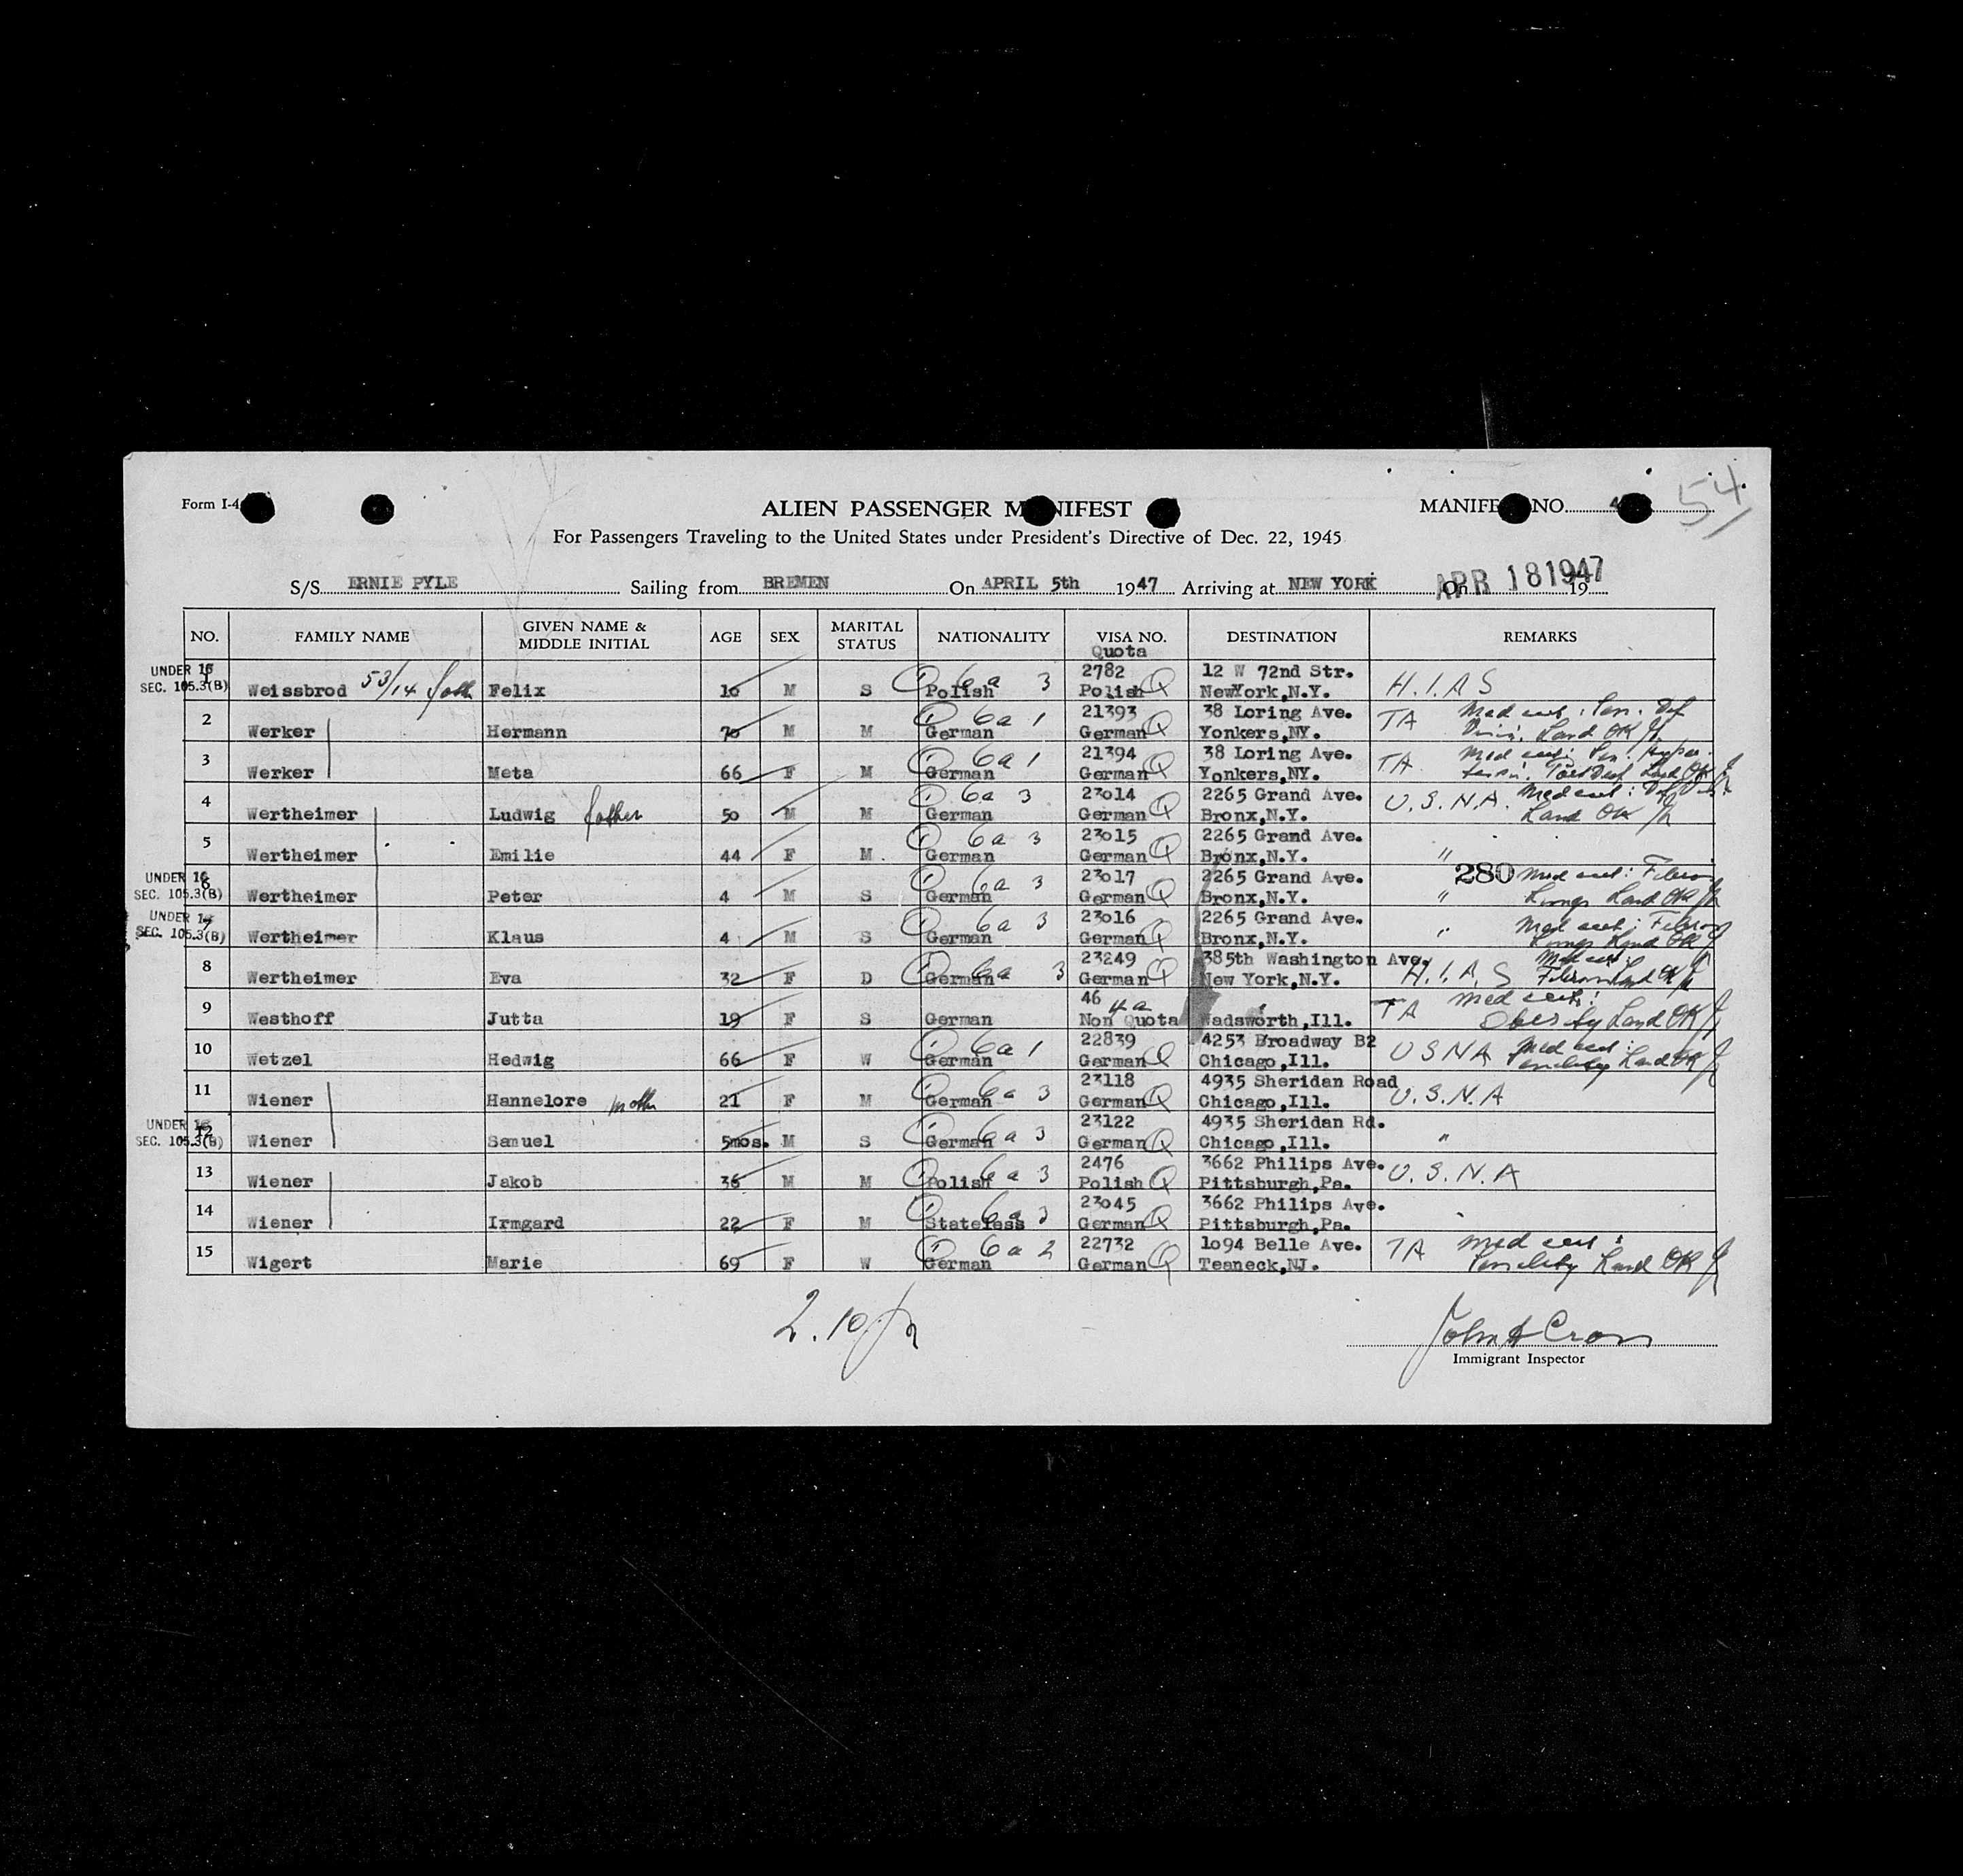 Form I-4
ALIEN PASSENGER M NIFEST
MANIFE NO. 4
54
For Passengers Traveling to the United States under President's Directive of Dec. 22, 1945
S/S ERNIE PYLE Sailing from BREMEN On APRIL 5th 1947 Arriving at NEW YORK On APR 18 1947 19
NO. FAMILY NAME GIVEN NAME & MIDDLE INITIAL AGE SEX MARITAL STATUS NATIONALITY VISA NO. DESTINATION REMARKS
Quota
UNDER 16 SEC. 105.3(B) 1 Weissbrod 53/14 Felix 10 M S Polish 6a 3 2782 Polish Q 12 W 72nd Str. NewYork,N.Y. H.I.A.S
2 Werker Hermann 70 M M German 6a 1 21393 German Q 38 Loring Ave. Yonkers,NY. TA Med cert: Sen. Def Vision. Land OK
3 Werker Meta 66 F M German 6a 1 21394 German Q 38 Loring Ave. Yonkers,NY. TA Med cert: Sen. Hyper- Land OK
4 Wertheimer Ludwig father 50 M M German 6a 3 23014 German Q 2265 Grand Ave. Bronx,N.Y. U.S.N.A. Med cert: Def Land OK
5 Wertheimer Emilie 44 F M German 6a 3 23015 German Q 2265 Grand Ave. Bronx,N.Y. "
UNDER 16 SEC. 105.3(B) 6 Wertheimer Peter 4 M S German 6a 3 23017 German Q 2265 Grand Ave. Bronx,N.Y. " 280 Med cert: Lungs Land OK
UNDER 16 SEC. 105.3(B) 7 Wertheimer Klaus 4 M S German 6a 3 23016 German Q 2265 Grand Ave. Bronx,N.Y. " Med cert: Lungs Land OK
8 Wertheimer Eva 32 F D German 6a 3 23249 German Q 385th Washington Ave. New York,N.Y. H.I.A.S Med cert: Land OK
9 Westhoff Jutta 19 F S German 46 4a Non Quota Wadsworth,Ill. TA Med cert: Obesity Land OK
10 Wetzel Hedwig 66 F W German 6a 1 22839 German Q 4253 Broadway B2 Chicago,Ill. USNA Med cert: Senility Land OK
11 Wiener Hannelore mother 21 F M German 6a 3 23118 German Q 4935 Sheridan Road Chicago,Ill. U.S.N.A
UNDER 16 SEC. 105.3(B) 12 Wiener Samuel 5mos. M S German 6a 3 23122 German Q 4935 Sheridan Rd. Chicago,Ill. "
13 Wiener Jakob 36 M M Polish 6a 3 2476 Polish Q 3662 Philips Ave. Pittsburgh,Pa. U.S.N.A
14 Wiener Irmgard 22 F M Stateless 6a 3 23045 German Q 3662 Philips Ave. Pittsburgh,Pa.
15 Wigert Marie 69 F W German 6a 2 22732 German Q 1094 Belle Ave. Teaneck,NJ. TA Med cert: Senility Land OK
2.10
John A Cross
Immigrant Inspector